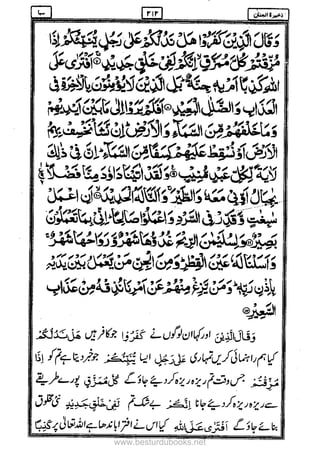 سبا ۳۱۳ ذخیرة الجنان
وَقَالَ الَّذِيْنَ كَفَرُوْا هَلْ نَدُلُّكُمْ عَلٰى رَجُلٍ يُّنَبِّئُكُمْ اِذَا
مُزِّقْتُمْ كُلَّ مُمَزَّقٍ اِنَّكُمْ لَفِيْ خَلْقٍ جَدِيْدٍ اَفْتَرٰى عَلَى
اللّٰهِ كَذِبًا اَمْ بِهٖ جِنَّةٌ بَلِ الَّذِيْنَ لَا يُؤْمِنُوْنَ بِالْاٰخِرَةِ فِي
الْعَذَابِ وَالضَّلٰلِ الْبَعِيْدِ اَفَلَمْ يَرَوْا اِلٰى مَا بَيْنَ اَيْدِيْهِمْ
وَمَا خَلْفَهُمْ مِّنَ السَّمَآءِ وَالْاَرْضِ اِنْ نَّشَاْ نَخْسِفْ بِهِمُ
الْاَرْضَ اَوْ نُسْقِطْ عَلَيْهِمْ كِسَفًا مِّنَ السَّمَآءِ اِنَّ فِيْ ذٰلِكَ
لَاٰيَةً لِّكُلِّ عَبْدٍ مُّنِيْبٍ وَلَقَدْ اٰتَيْنَا دَاوٗدَ مِنَّا فَضْلًا
يٰجِبَالُ اَوِّبِيْ مَعَهٗ وَالطَّيْرَ وَاَلَنَّا لَهُ الْحَدِيْدَ اَنِ اعْمَلْ
سٰبِغٰتٍ وَّقَدِّرْ فِي السَّرْدِ وَاعْمَلُوْا صَالِحًا اِنِّيْ بِمَا تَعْمَلُوْنَ
بَصِيْرٌ وَلِسُلَيْمٰنَ الرِّيْحَ غُدُوُّهَا شَهْرٌ وَّرَوَاحُهَا شَهْرٌ
وَاَسَلْنَا لَهٗ عَيْنَ الْقِطْرِ وَمِنَ الْجِنِّ مَنْ يَّعْمَلُ بَيْنَ يَدَيْهِ
بِاِذْنِ رَبِّهٖ وَمَنْ يَّزِغْ مِنْهُمْ عَنْ اَمْرِنَا نُذِقْهُ مِنْ عَذَابِ
السَّعِيْرِ
وَقَالَ الَّذِيْنَ اور کہا ان لوگوں نے كَفَرُوْا جو کافر ہیں هَلْ نَدُلُّكُمْ
کیا ہم راہنمائی کریں تمہاری عَلٰى رَجُلٍ ایسا يُّنَبِّئُكُمْ جو خبر دیتا ہے تم کو اِذَا
مُزِّقْتُمْ جس وقت تم ریزہ ریزہ کر دیئے جاؤ گے كُلَّ مُمَزَّقٍ پورے طریقے
سے ریزہ ریزہ کر دیئے جانا اِنَّكُمْ بے شک تم لَفِيْ خَلْقٍ جَدِيْدٍ نئی مخلوق
بنائے جاؤ گے اَفْتَرٰى عَلَى اللّٰهِ کیا اس نے افترا باندھا ہے اللہ تعالیٰ پر كَذِبًا
www.besturdubooks.net